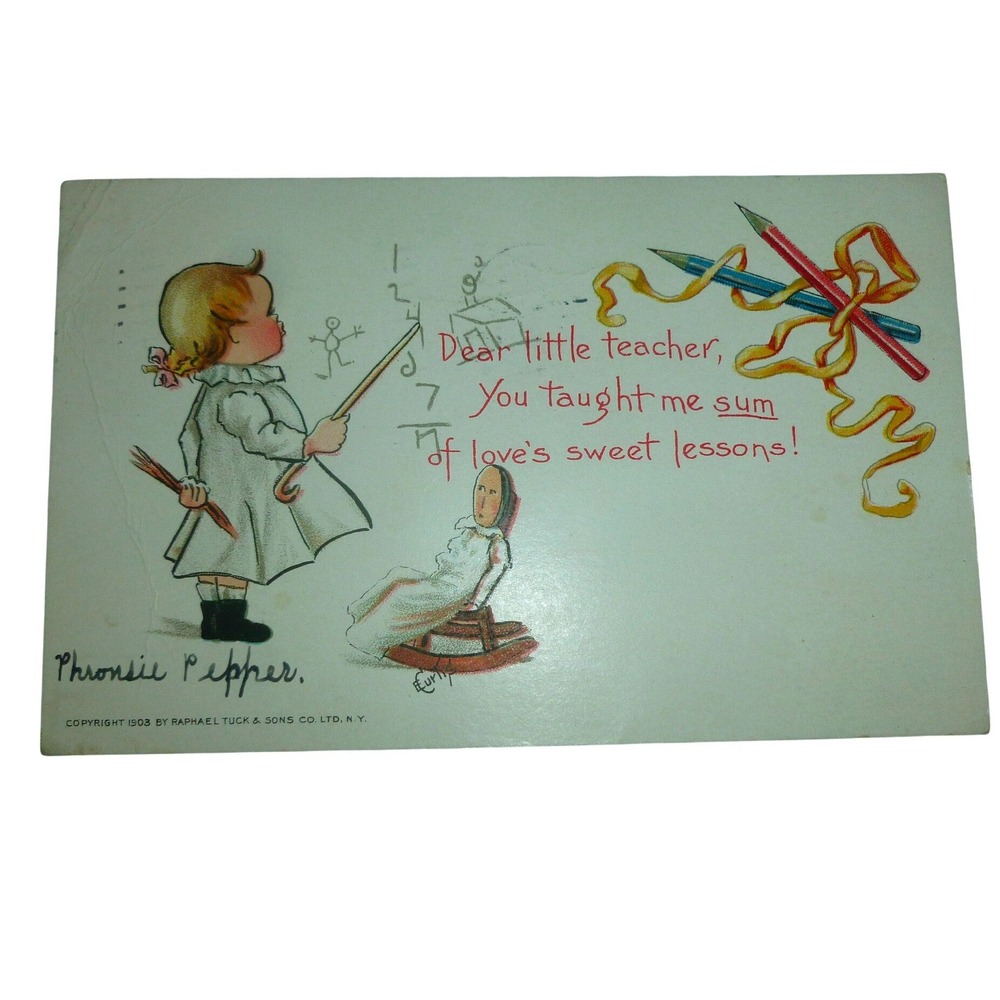 1
2
4
7
Dear little teacher,
You taught me sum
of love's sweet lessons!
Phronsie Pepper.
ECurtis
COPYRIGHT 1903 BY RAPHAEL TUCK & SONS CO. LTD. N.Y.